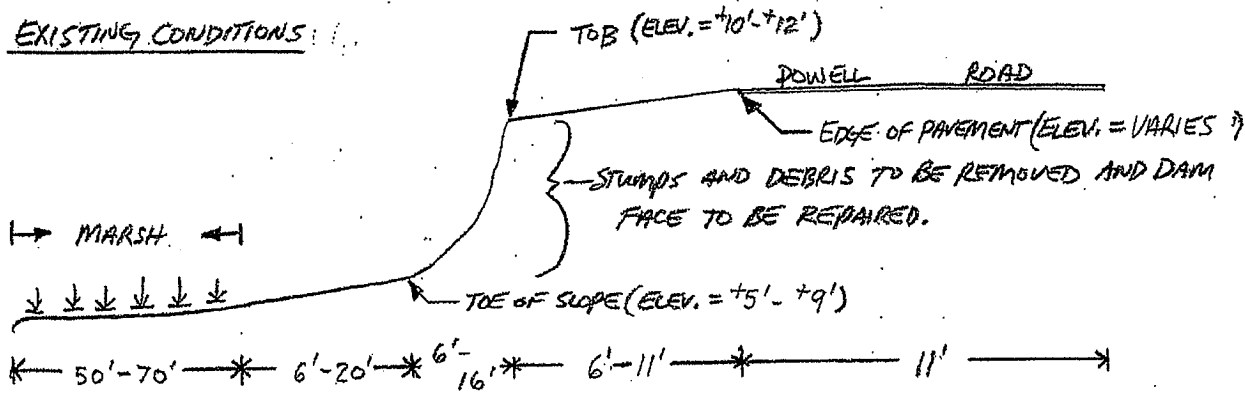 EXISTING CONDITIONS:
TOB (ELEV. = +10' - +12')
POWELL ROAD
EDGE OF PAVEMENT (ELEV. = VARIES ")
STUMPS AND DEBRIS TO BE REMOVED AND DAM
FACE TO BE REPAIRED.
MARSH
TOE OF SLOPE (ELEV. = +5' - +9')
50'-70' 6'-20' 6'-16' 6'-11' 11'